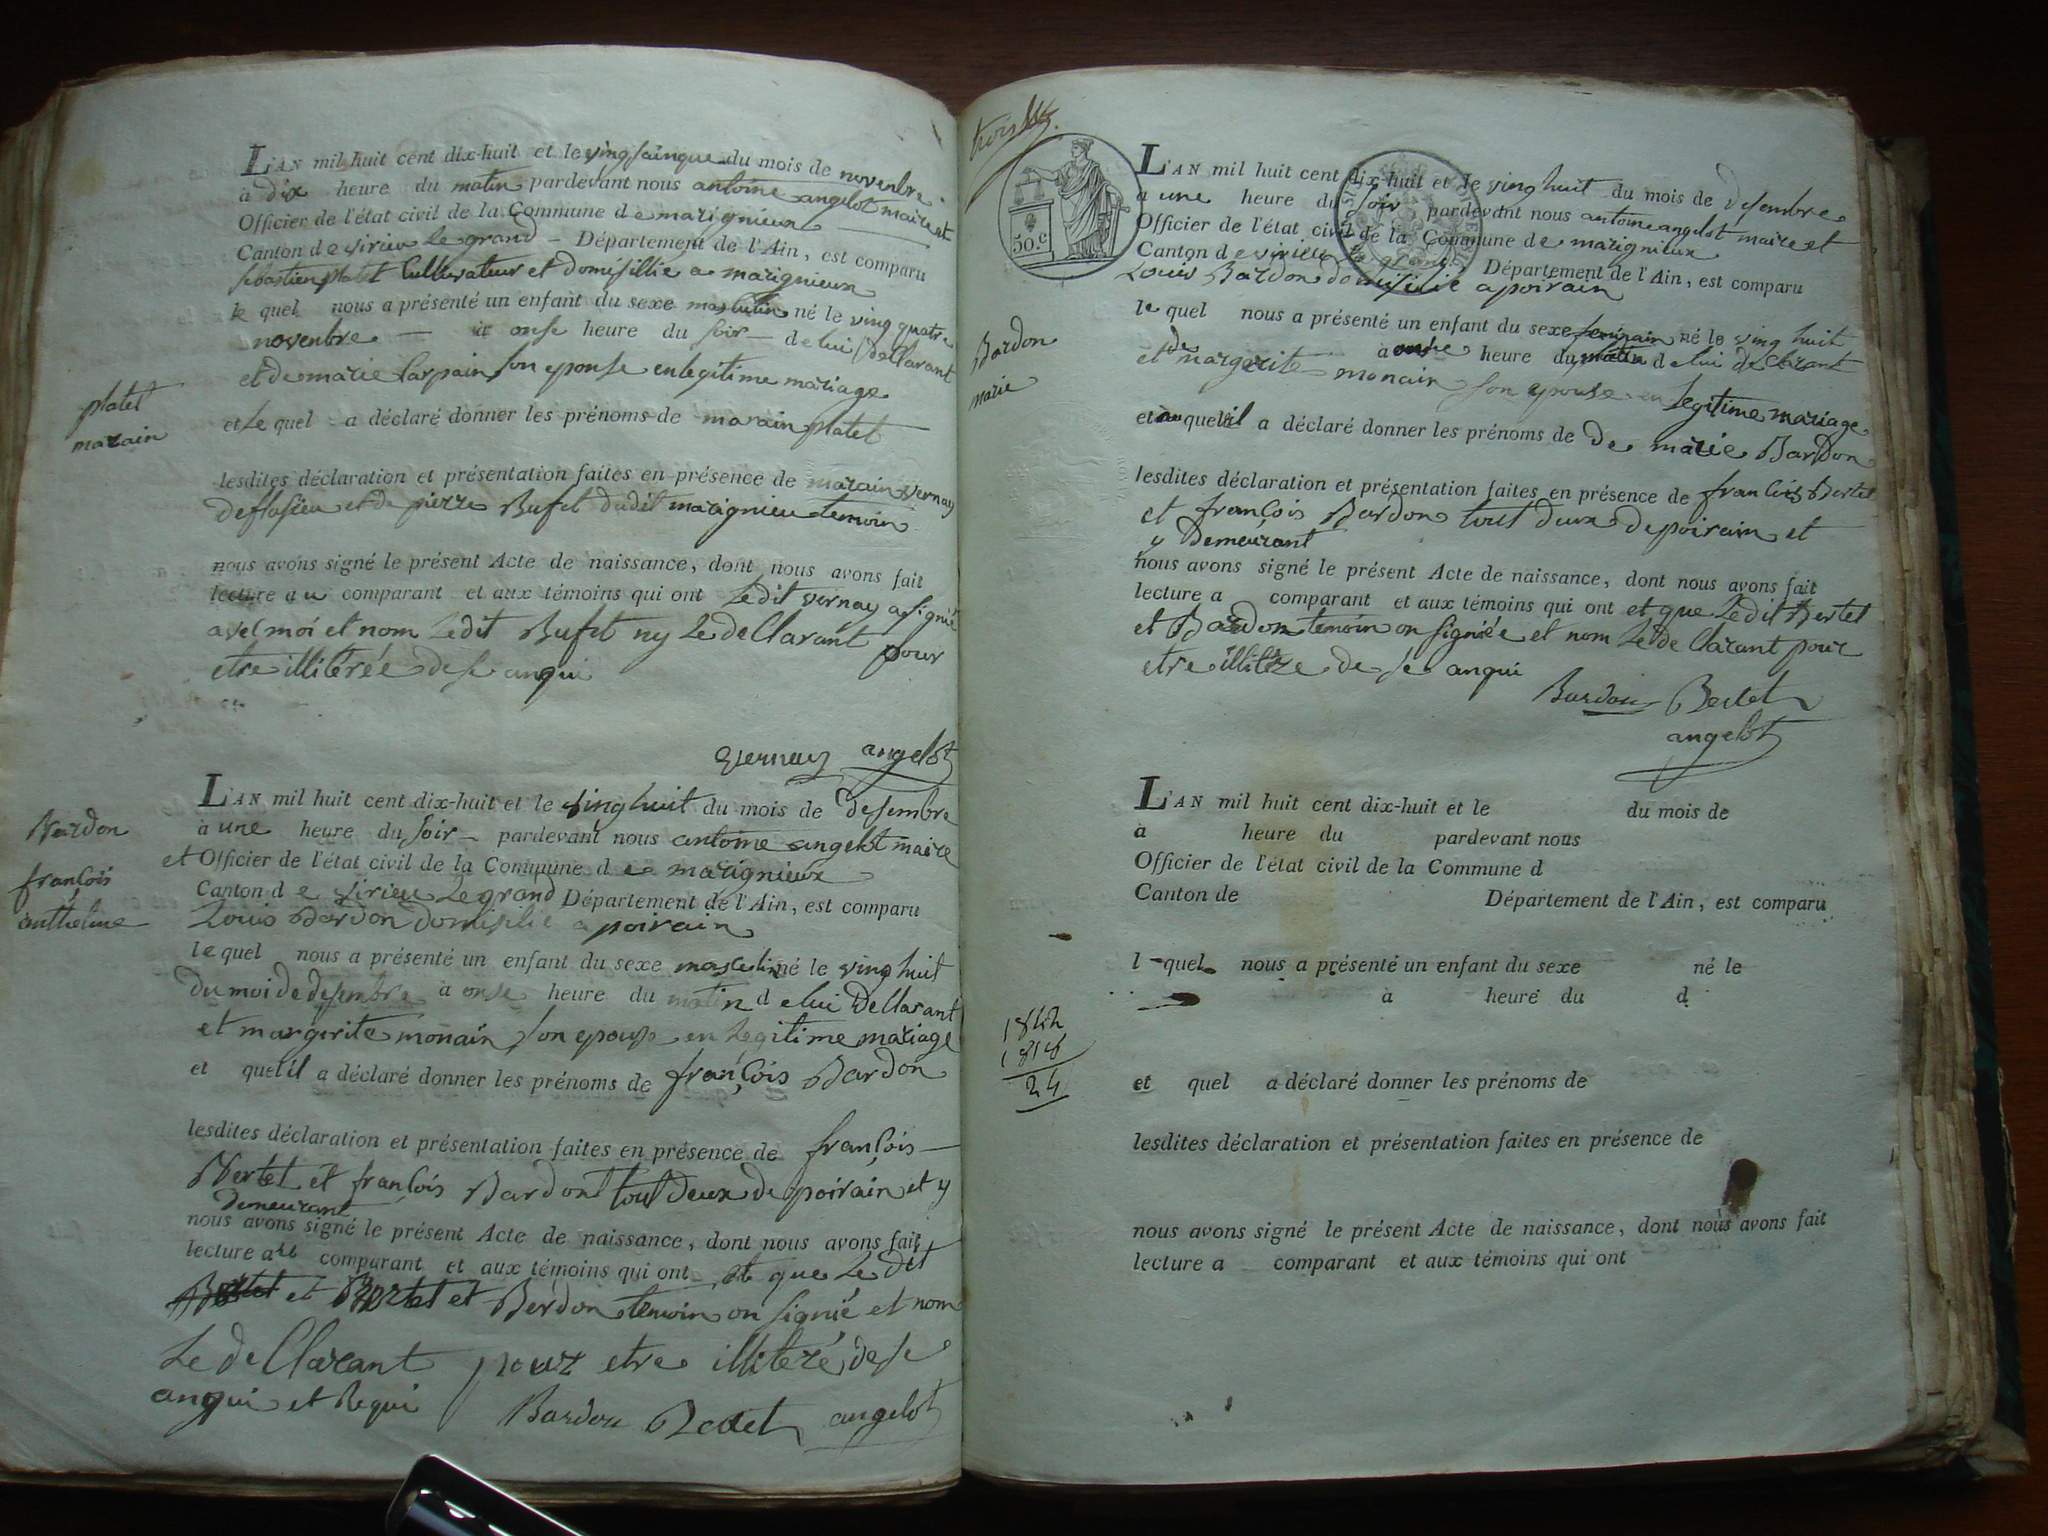 L'AN mil huit cent dix-huit et le vingsainque du mois de novenbre
à dix heure du matin pardevant nous antoine angelot maire et
Officier de l'état civil de la Commune de marignieux
Canton de virieu le grand Département de l'Ain, est comparu
sebastien platet Cultivateur et domisillie a marignieux
le quel nous a présenté un enfant du sexe masculin né le ving quatre
novenbre à onse heure du soir de lui declarant
et de marie Carpain son epouse en legitime mariage
platet
marain
et Le quel a déclaré donner les prénoms de marain platet
lesdites déclaration et présentation faites en présence de marain vernay
de flasieu et de pierre Bufet dudit marignieu temoin
nous avons signé le présent Acte de naissance, dont nous avons fait
lecture au comparant et aux témoins qui ont Ledit vernay a signié
avec moi et nom Ledit Bufet ny Le declarant pour
etre illiterée de se anqui
Vernay angelot
Bardon
françois
anthelme
L'AN mil huit cent dix-huit et le ving huit du mois de desembre
à une heure du soir pardevant nous antoine angelot maire
et Officier de l'état civil de la Commune de marignieux
Canton de virieu Le grand Département de l'Ain, est comparu
Louis Bardon domisilié a poirain
le quel nous a présenté un enfant du sexe masculin né le ving huit
du moi de desembre à onse heure du matin de lui declarant
et margerite monain son epouse en Legitime mariage
et quel il a déclaré donner les prénoms de françois Bardon
lesdites déclaration et présentation faites en présence de françois
Bertet et françois Bardon tout deux de poirain et y
demeurant
nous avons signé le présent Acte de naissance, dont nous avons fait
lecture au comparant et aux témoins qui ont et que Le dit
et Bertet et Berdon temoin on signié et nom
Le declarant pour etre illiteré de se
anqui et Requi
Bardon Bertet angelot
50.c
L'AN mil huit cent dix-huit et le ving huit du mois de desembre
à une heure du soir pardevant nous antoine angelot maire et
Officier de l'état civil de la Commune de marignieux
Canton de virieu le grand Département de l'Ain, est comparu
Louis Bardon domisilié a poirain
Bardon
marie
le quel nous a présenté un enfant du sexe feminain né le ving huit
à onse heure du matin de lui declarant
et de margerite monain son epouse en Legitime mariage
et au quel il a déclaré donner les prénoms de de marie Bardon
lesdites déclaration et présentation faites en présence de françois Bertet
et françois Bardon tout deux de poirain et
y demeurant
nous avons signé le présent Acte de naissance, dont nous avons fait
lecture a comparant et aux témoins qui ont et que Ledit Bertet
et Bardon temoin on signiée et nom Le declarant pour
etre illitere de se anqui
Bardon Bertet
angelot
L'AN mil huit cent dix-huit et le du mois de
à heure du pardevant nous
Officier de l'état civil de la Commune d
Canton de Département de l'Ain, est comparu
l quel nous a présenté un enfant du sexe né le
à heure du d
1842
1818
24
et quel a déclaré donner les prénoms de
lesdites déclaration et présentation faites en présence de
nous avons signé le présent Acte de naissance, dont nous avons fait
lecture a comparant et aux témoins qui ont